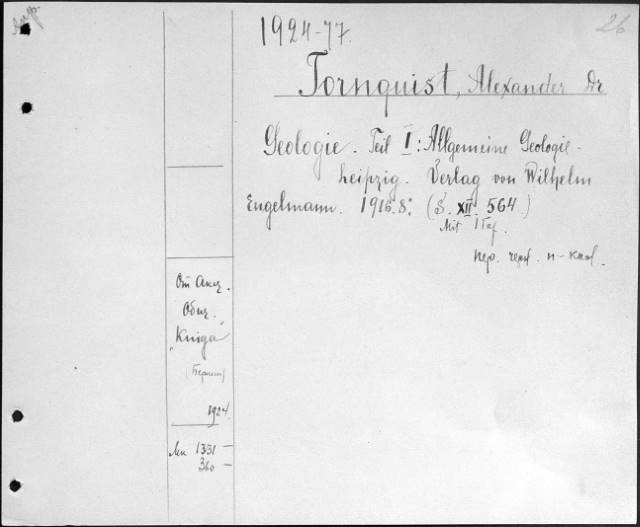 1924-77.
26
Tornquist, Alexander Dr
Geologie. Teil I: Allgemeine Geologie.
Leipzig. Verlag von Wilhelm
Engelmann. 1916. 8°. (S. XII 564.)
Mit 1 Taf.
Пер. черн. п-кол.
От Акц.
Общ.
"Kniga"
(Берлин)
1924.
1331 —
360 —